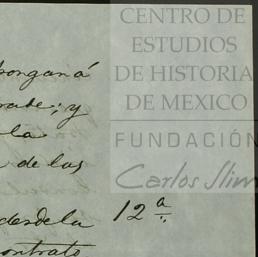 CENTRO DE
ESTUDIOS
DE HISTORIA
DE MEXICO
FUNDACIÓN
Carlos Slim
pongan á
rade; y
la
de las
desde la 12ª
contrato